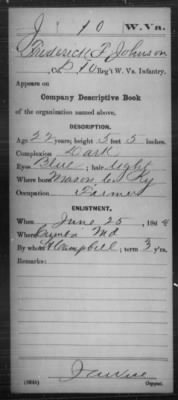 J 10 W. Va.
Frederick F Johnson
Co. B, 10 Reg't W. Va. Infantry.
Appears on
Company Descriptive Book
of the organization named above.
DESCRIPTION.
Age 22 years; height 5 feet 5 inches.
Complexion Dark
Eyes Blue; hair Light
Where born Mason Co. Ky
Occupation Farmer
ENLISTMENT.
When June 25, 186
Where Md
By whom Campbell; term 3 y'rs.
Remarks:
Copyist.